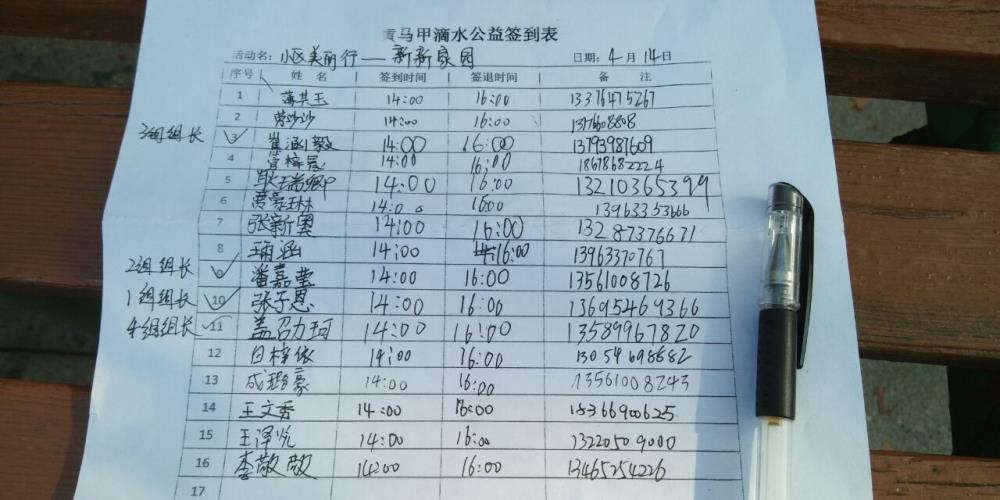 马甲滴水公益签到表
活动名: 小区美丽行——新新家园 日期: 4月14日
序号 姓 名 签到时间 签退时间 备 注
1 薄其玉 14:00 16:00 13376475267
2 劳沙沙 14:00 16:00 13176608808
3组组长 3 崔涵毅 14:00 16:00 13793987609
4 宫梓晨 14:00 16:00 18678682224
5 耿瑞卿 14:00 16:00 13210365399
6 14:00 16:00 13963353666
7 张新奥 14:00 16:00 13287376671
8 涵 14:00 16:00 13963370767
2组组长 9 潘嘉莹 14:00 16:00 13561008726
1组组长 10 张子恩 14:00 16:00 13695469366
4组组长 11 盖召力珂 14:00 16:00 13589967820
12 白梓依 14:00 16:00 13054698882
13 成璐豪 14:00 16:00 13561008243
14 王文秀 14:00 16:00 18366900625
15 王泽悦 14:00 16:00 13220509000
16 李敬敬 14:00 16:00 13465254226
17